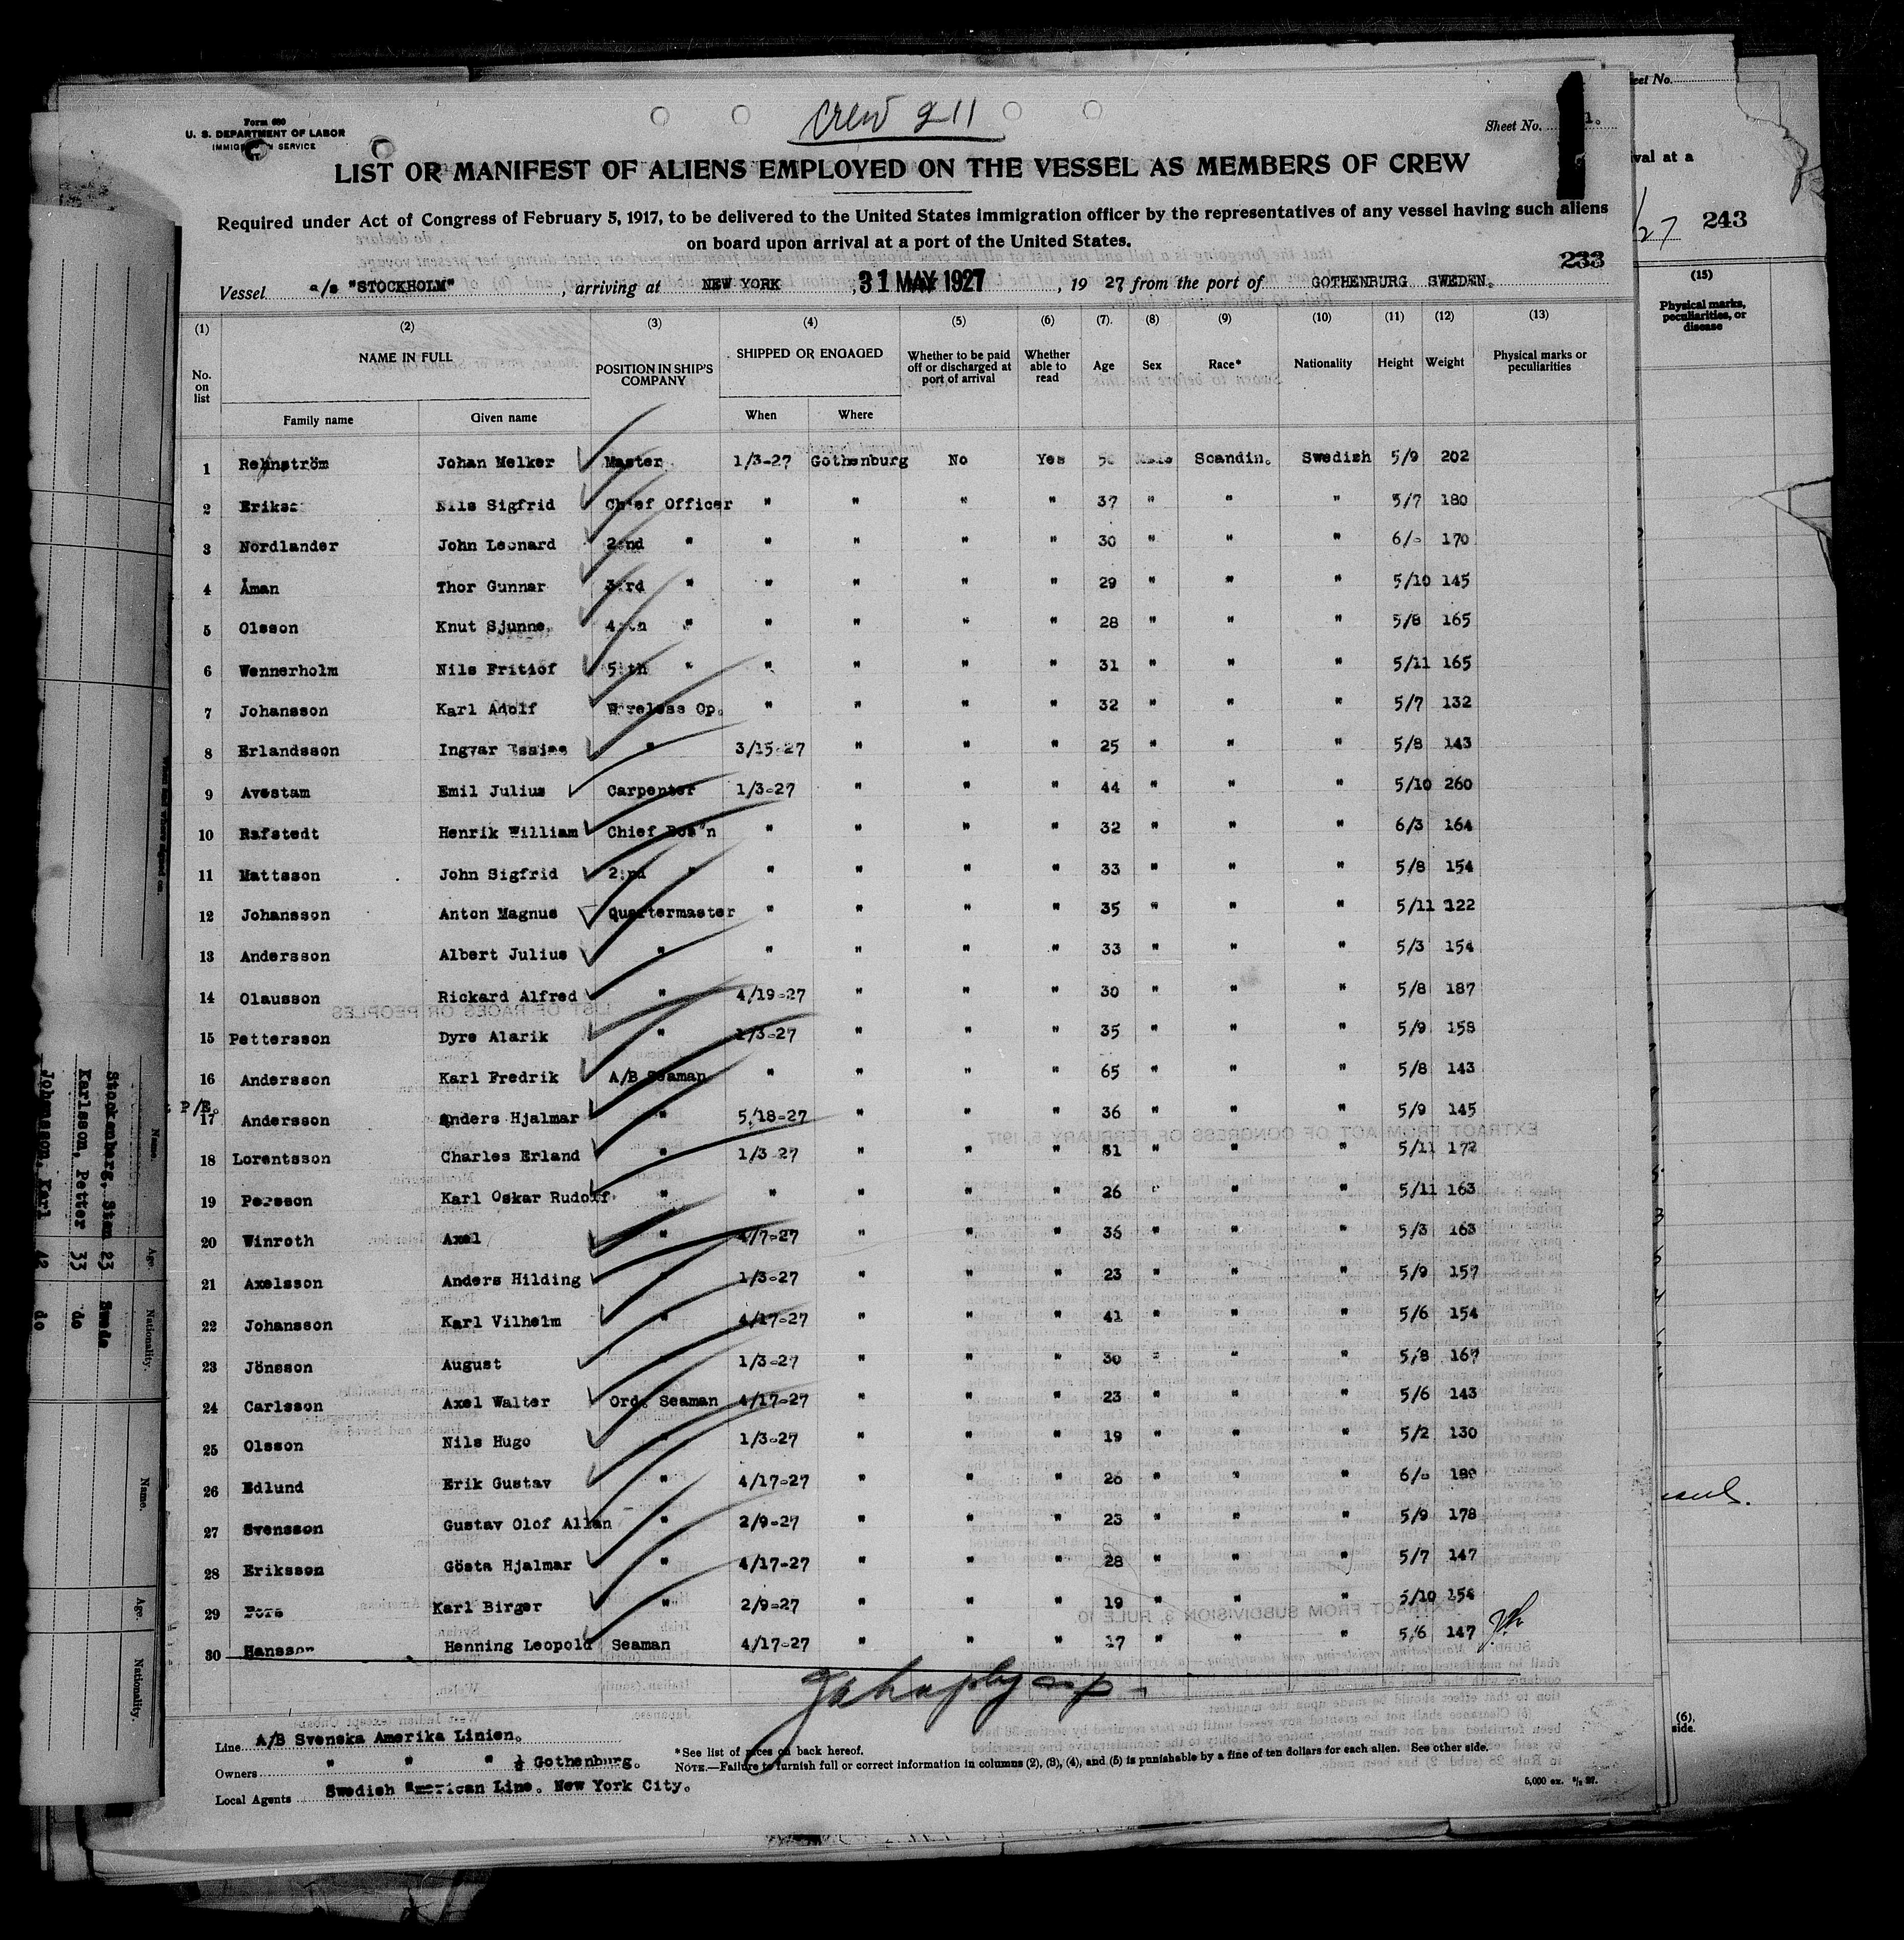 Form 680
U. S. DEPARTMENT OF LABOR
IMMIGRATION SERVICE
Crew 211
Sheet No. 1.
LIST OR MANIFEST OF ALIENS EMPLOYED ON THE VESSEL AS MEMBERS OF CREW
Required under Act of Congress of February 5, 1917, to be delivered to the United States immigration officer by the representatives of any vessel having such aliens
on board upon arrival at a port of the United States.
233
Vessel "STOCKHOLM", arriving at NEW YORK, 31 MAY 1927, 19 27 from the port of GOTHENBURG SWEDEN.
(1) (2) (3) (4) (5) (6) (7). (8) (9) (10) (11) (12) (13)
No. on list NAME IN FULL POSITION IN SHIP'S COMPANY SHIPPED OR ENGAGED Whether to be paid off or discharged at port of arrival Whether able to read Age Sex Race* Nationality Height Weight Physical marks or peculiarities
Family name Given name When Where
1 Rehnström Johan Melker Master 1/3-27 Gothenburg No Yes Male Scandin. Swedish 5/9 202
2 Nils Sigfrid Chief Officer " " " " 37 " " " 5/7 180
3 Nordlander John Leonard 2:nd " " " " " 30 " " " 6/- 170
4 Åman Thor Gunnar 3:rd " " " " " 29 " " " 5/10 145
5 Olsson Knut Sjunne 4:th " " " " " 28 " " " 5/8 165
6 Wennerholm Nils Fritiof 5:th " " " " " 31 " " " 5/11 165
7 Johansson Karl Adolf Wireless Op. " " " " 32 " " " 5/7 132
8 Erlandsson Ingvar " 3/15-27 " " " 25 " " " 5/8 143
9 Avestam Emil Julius Carpenter 1/3-27 " " " 44 " " " 5/10 260
10 Rafstedt Henrik William Chief Bos"n " " " " 32 " " " 6/3 164
11 Mattsson John Sigfrid 2:nd " " " " " 33 " " " 5/8 154
12 Johansson Anton Magnus Quartermaster " " " " 35 " " " 5/11 122
13 Andersson Albert Julius " " " " " 33 " " " 5/3 154
14 Olausson Rickard Alfred " 4/19-27 " " " 30 " " " 5/8 187
15 Pettersson Dyre Alarik " 1/3-27 " " " 35 " " " 5/9 158
16 Andersson Karl Fredrik A/B Seaman " " " " 65 " " " 5/8 143
P/E.
17 Andersson Anders Hjalmar " 5/18-27 " " " 36 " " " 5/9 145
18 Lorentsson Charles Erland " 1/3-27 " " " 31 " " " 5/11 172
19 Persson Karl Oskar Rudolf " " " " " 26 " " " 5/11 163
20 Winroth Axel 4/7-27 " " " 36 " " " 5/3 163
21 Axelsson Anders Hilding " 1/3-27 " " " 23 " " " 5/9 157
22 Johansson Karl Vilhelm " 4/17-27 " " " 41 " " " 5/6 154
23 Jönsson August " 1/3-27 " " " 30 " " " 5/8 167
24 Carlsson Axel Walter Ord. Seaman 4/17-27 " " " 23 " " " 5/6 143
25 Olsson Nils Hugo " 1/3-27 " " " 19 " " " 5/2 130
26 Edlund Erik Gustav " 4/17-27 " " " 26 " " " 6/- 180
27 Svensson Gustav Olof Allan " 2/9-27 " " " 23 " " " 5/9 178
28 Eriksson Gösta Hjalmar " 4/17-27 " " " 28 " " " 5/7 147
29 Karl Birger " 2/9-27 " " " 19 " " " 5/10 154
30 Hansson Henning Leopold Seaman 4/17-27 " " " 17 " " " 5/6 147
Line A/B Svenska Amerika Linien.
Owners " " " Gothenburg.
Local Agents Swedish American Line. New York City.
*See list of races on back hereof.
NOTE.—Failure to furnish full or correct information in columns (2), (3), (4), and (5) is punishable by a fine of ten dollars for each alien. See other side.
5,000 ex.
Sheet No.
val at a
27 243
(15)
Physical marks, peculiarities, or disease
(6),
side.
Name. Age. Nationality. Name. Age. Nationality.
Stockenberg, Sten 23 Swede
Karlsson, Petter 33 do
Johansson, Karl 42 do
LIST OF RACES OR PEOPLES
EXTRACT FROM ACT OF CONGRESS OF FEBRUARY 5, 1917
EXTRACT FROM SUBDIVISION 3, RULE 10